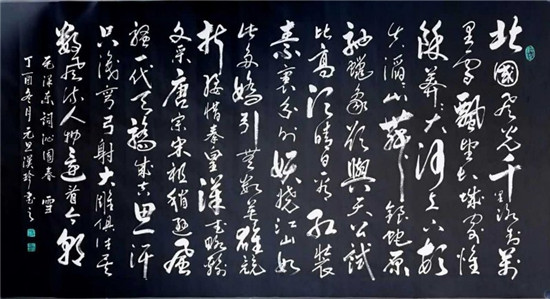 北國風光千里冰封萬
里雪飄望長城內外惟
餘莽莽大河上下頓
失滔滔山舞銀蛇原
馳蠟象欲與天公試
比高須晴日看紅裝
素裹分外妖嬈江山如
此多嬌引無數英雄競
折腰惜秦皇漢武略輸
文采唐宗宋祖稍遜風
騷一代天驕成吉思汗
只識彎弓射大雕俱往矣
數風流人物還看今朝
毛澤東詞沁園春 雪
丁酉冬月元旦漢珍書之